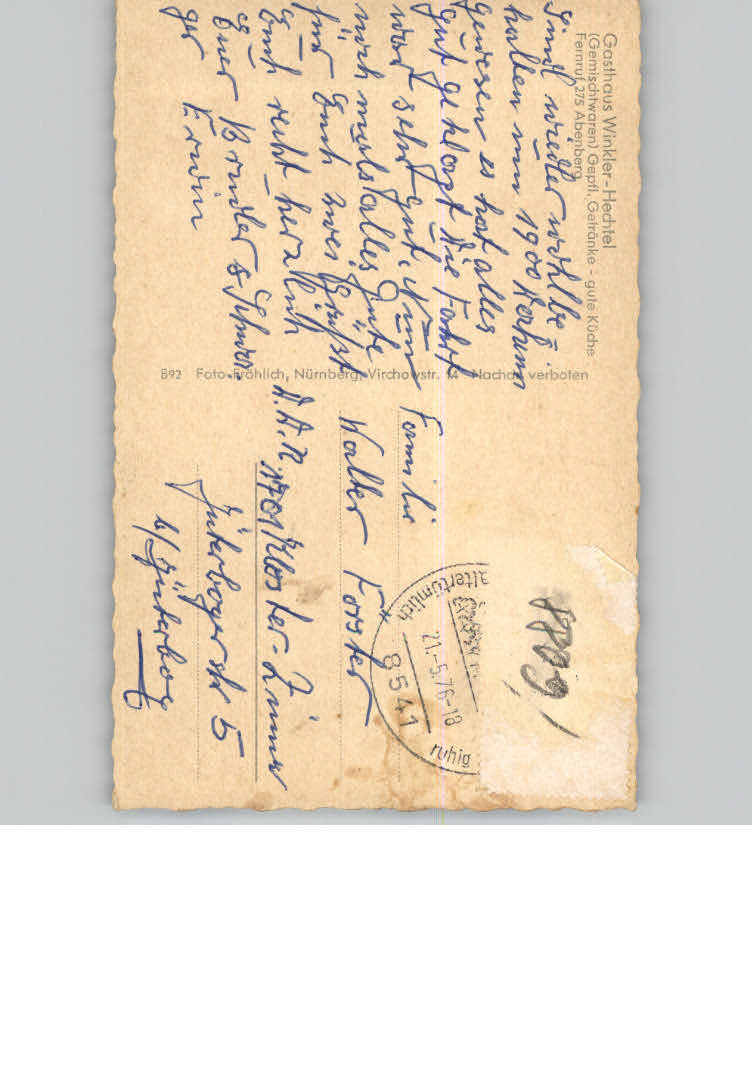 Gasthaus Winkler-Hechtel
(Gemischtwaren) Gepfl. Getränke - gute Küche -
Fernruf 275 Abenberg
Sind wieder wohlbe=
halten um 1900
gewesen es hat alles
gut geklapt die Fahrt
war sehr gut. Nun
noch mals alles Gute
für Euch zwei Grüßt
Euch recht herzlich
Euer Bruder & Schwa=
ger Erwin
B92 Foto-Fröhlich, Nürnberg, Virchowstr. 14 Nachdr. verboten
Familie
Walter Förster
D.D.R. 1701 Kloster-Zinna
Jüterboger str 5
b/ Jüterbog
altertümlich
21.-5.76-18
8541
ruhig